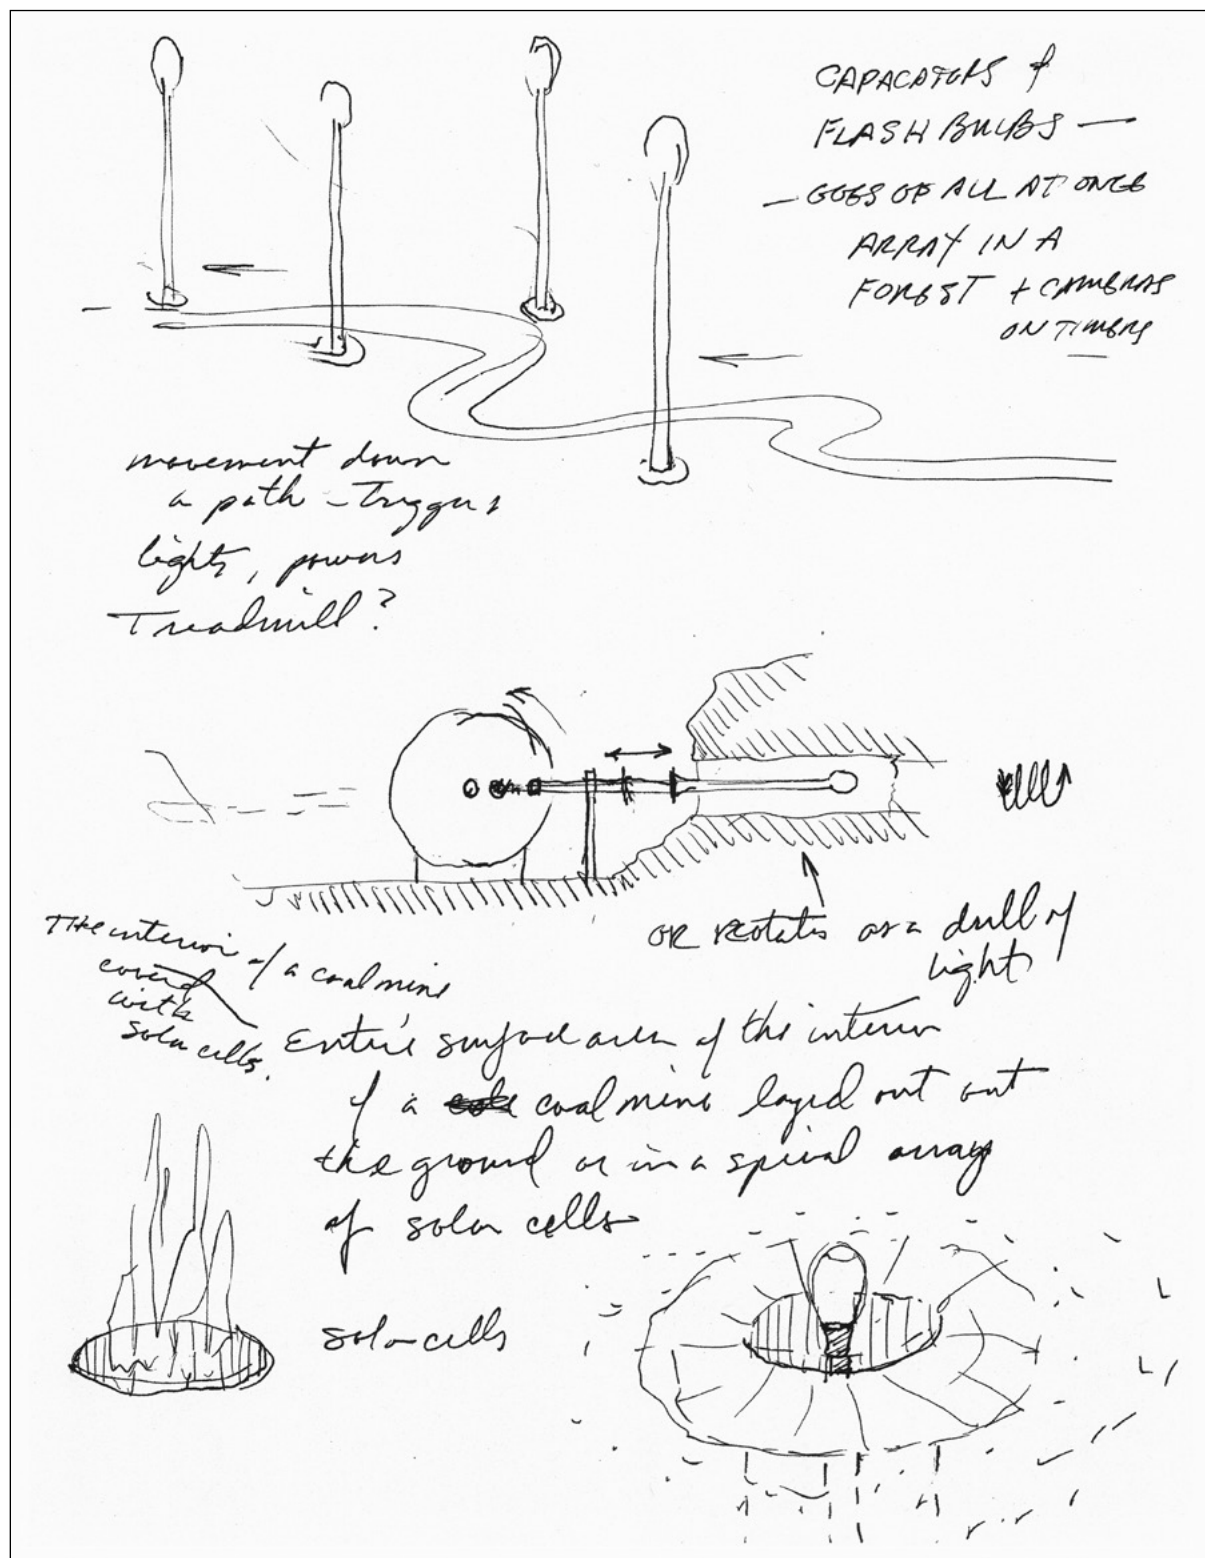 CAPACATORS &
FLASH BULBS —
— GOES OF ALL AT ONCE
ARRAY IN A
FOREST + CAMERAS
ON TIMERS
movement down
a path – Triggers
lights, powers
Treadmill?
OR ROTATES as a drill of
light
THE interior of a coal mine
covered
with
solar cells.
Entire surface area of the interior
of a coal mine layed out out
the ground or in a spiral array
of solar cells
solar cells